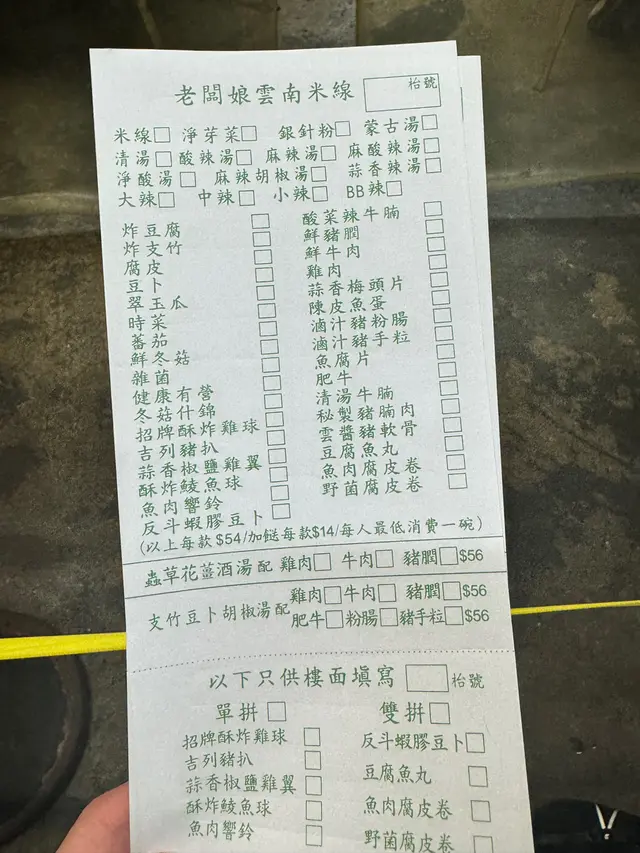 老闆娘雲南米線 枱號
米線□ 淨芽菜□ 銀針粉□ 蒙古湯□
清湯□ 酸辣湯□ 麻辣湯□ 麻酸辣湯□
淨酸湯□ 麻辣胡椒湯□ 蒜香辣湯□
大辣□ 中辣□ 小辣□ BB辣□
炸豆腐□
炸支竹□
腐皮□
豆卜□
翠玉瓜□
時菜□
蕃茄□
鮮冬菇□
雜菌□
健康有營□
冬菇什錦□
招牌酥炸雞球□
吉列豬扒□
蒜香椒鹽雞翼□
酥炸鯪魚球□
魚肉響鈴□
反斗蝦膠豆卜□
酸菜辣牛腩□
鮮豬膶□
鮮牛肉□
雞肉□
蒜香梅頭片□
陳皮魚蛋□
滷汁豬粉腸□
滷汁豬手粒□
魚腐片□
肥牛□
清湯牛腩□
秘製豬腩肉□
雲醬豬軟骨□
豆腐魚丸□
魚肉腐皮卷□
野菌腐皮卷□
(以上每款$54/加餸每款$14/每人最低消費一碗)
蟲草花薑酒湯配 雞肉□ 牛肉□ 豬膶□$56
支竹豆卜胡椒湯配 雞肉□ 牛肉□ 豬膶□$56
肥牛□ 粉腸□ 豬手粒□$56
以下只供樓面填寫 □枱號
單拼□ 雙拼□
招牌酥炸雞球□
吉列豬扒□
蒜香椒鹽雞翼□
酥炸鯪魚球□
魚肉響鈴□
反斗蝦膠豆卜□
豆腐魚丸□
魚肉腐皮卷□
野菌腐皮卷□